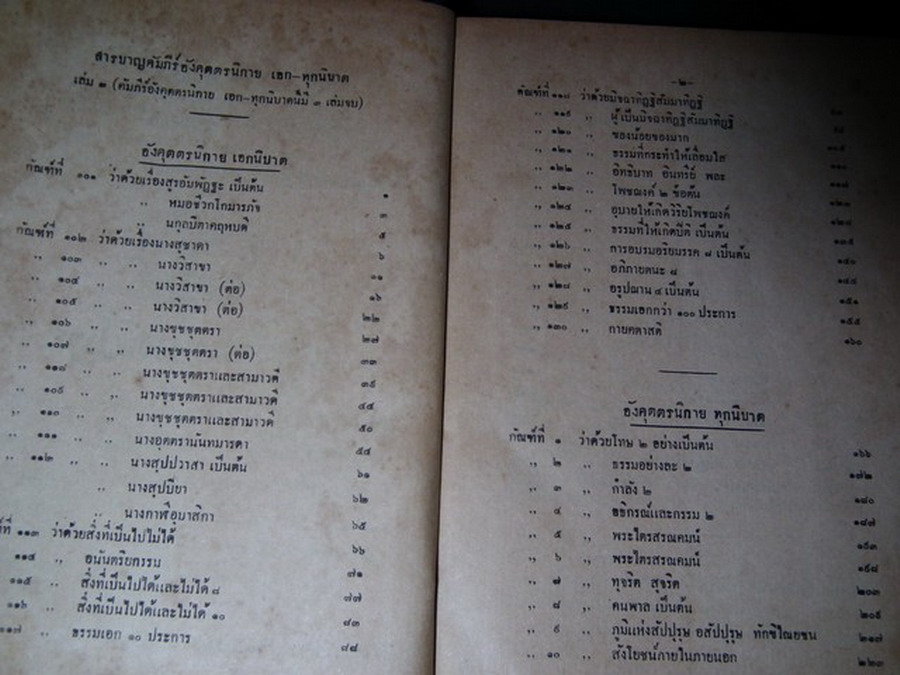 สารบาญคัมภีร์อังคุตตรนิกาย เอก-ทุกนิบาต
เล่ม ๑ (คัมภีร์อังคุตตรนิกาย เอก-ทุกนิบาตนี้มี ๓ เล่มจบ)
อังคุตตรนิกาย เอกนิบาต
กัณฑ์ที่ ๑๐๑ ว่าด้วยเรื่องสุรอัมพัฏฐะ เป็นต้น ๑
,, หมอชีวกโกมารภัจ ๓
,, นกุลบิดาคฤหบดี ๕
กัณฑ์ที่ ๑๐๒ ว่าด้วยเรื่องนางสุชาดา ๖
,, ๑๐๓ ,, ,, นางวิสาขา ๑๑
,, ๑๐๔ ,, ,, นางวิสาขา (ต่อ) ๑๖
,, ๑๐๕ ,, ,, นางวิสาขา (ต่อ) ๒๒
,, ๑๐๖ ,, ,, นางขุชชุตตรา ๒๗
,, ๑๐๗ ,, ,, นางขุชชุตตรา (ต่อ) ๓๓
,, ๑๑๘ ,, ,, นางขุชชุตตราและสามาวดี ๓๙
,, ๑๐๙ ,, ,, นางขุชชุตตราและสามาวดี ๔๔
,, ๑๑๐ ,, ,, นางขุชชุตตราและสามาวดี ๕๐
,, ๑๑๑ ,, ,, นางอุตตรานันทมารดา ๕๔
,, ๑๑๒ ,, ,, นางสุปปวาสา เป็นต้น ๖๑
,, นางสุปปิยา ๖๒
,, นางกาฬีอุบาสิกา ๖๕
ที่ ๑๑๓ ว่าด้วยสิ่งที่เป็นไปไม่ได้ ๖๖
๑๑๔ ,, อนันตริยกรรม ๗๑
๑๑๕ ,, สิ่งที่เป็นไปได้และไม่ได้ ๘ ๗๗
๑๑๖ ,, สิ่งที่เป็นไปได้และไม่ได้ ๑๐ ๘๓
๑๑๗ ,, ธรรมเอก ๑๐ ประการ ๘๘
-๒-
กัณฑ์ที่ ๑๑๘ ว่าด้วยมิจฉาทิฏฐิสัมมาทิฏฐิ
,, ๑๑๙ ,, ผู้เป็นมิจฉาทิฏฐิสัมมาทิฏฐิ
,, ๑๒๐ ,, ของน้อยของมาก
,, ๑๒๑ ,, ธรรมที่กระทำให้เลื่อมใส
,, ๑๒๒ ,, อิทธิบาท อินทรีย์ พละ
,, ๑๒๓ ,, โพชฌงค์ ๒ ข้อต้น
,, ๑๒๔ ,, อุบายให้เกิดวิริยโพชฌงค์
,, ๑๒๕ ,, ธรรมที่ให้เกิดปีติ เป็นต้น ๑๓๕
,, ๑๒๖ ,, การอบรมอริยมรรค ๘ เป็นต้น ๑๔๐
,, ๑๒๗ ,, อภิภายตนะ ๘ ๑๔๔
,, ๑๒๘ ,, อรูปฌาน ๔ เป็นต้น ๑๕๑
,, ๑๒๙ ,, ธรรมเอกกว่า ๑๐๐ ประการ ๑๕๕
,, ๑๓๐ ,, กายคตาสติ ๑๖๐
อังคุตตรนิกาย ทุกนิบาต
กัณฑ์ที่ ๑ ว่าด้วยโทษ ๒ อย่างเป็นต้น ๑๖๖
,, ๒ ,, ธรรมอย่างละ ๒ ๑๗๒
,, ๓ ,, กำลัง ๒ ๑๘๐
,, ๔ ,, อธิกรณ์และกรรม ๒ ๑๘๗
,, ๕ ,, พระไตรสรณคมน์ ๑๙๓
,, ๖ ,, พระไตรสรณคมน์ ๑๙๘
,, ๗ ,, ทุจริต สุจริต ๒๐๓
,, ๘ ,, คนพาล เป็นต้น ๒๐๕
,, ๙ ,, ภูมิแห่งสัปปุรุษ อสัปปุรุษ ทักขิไณยชน ๒๑๗
,, ๑๐ ,, สังโยชน์ภายในภายนอก ๒๒๓